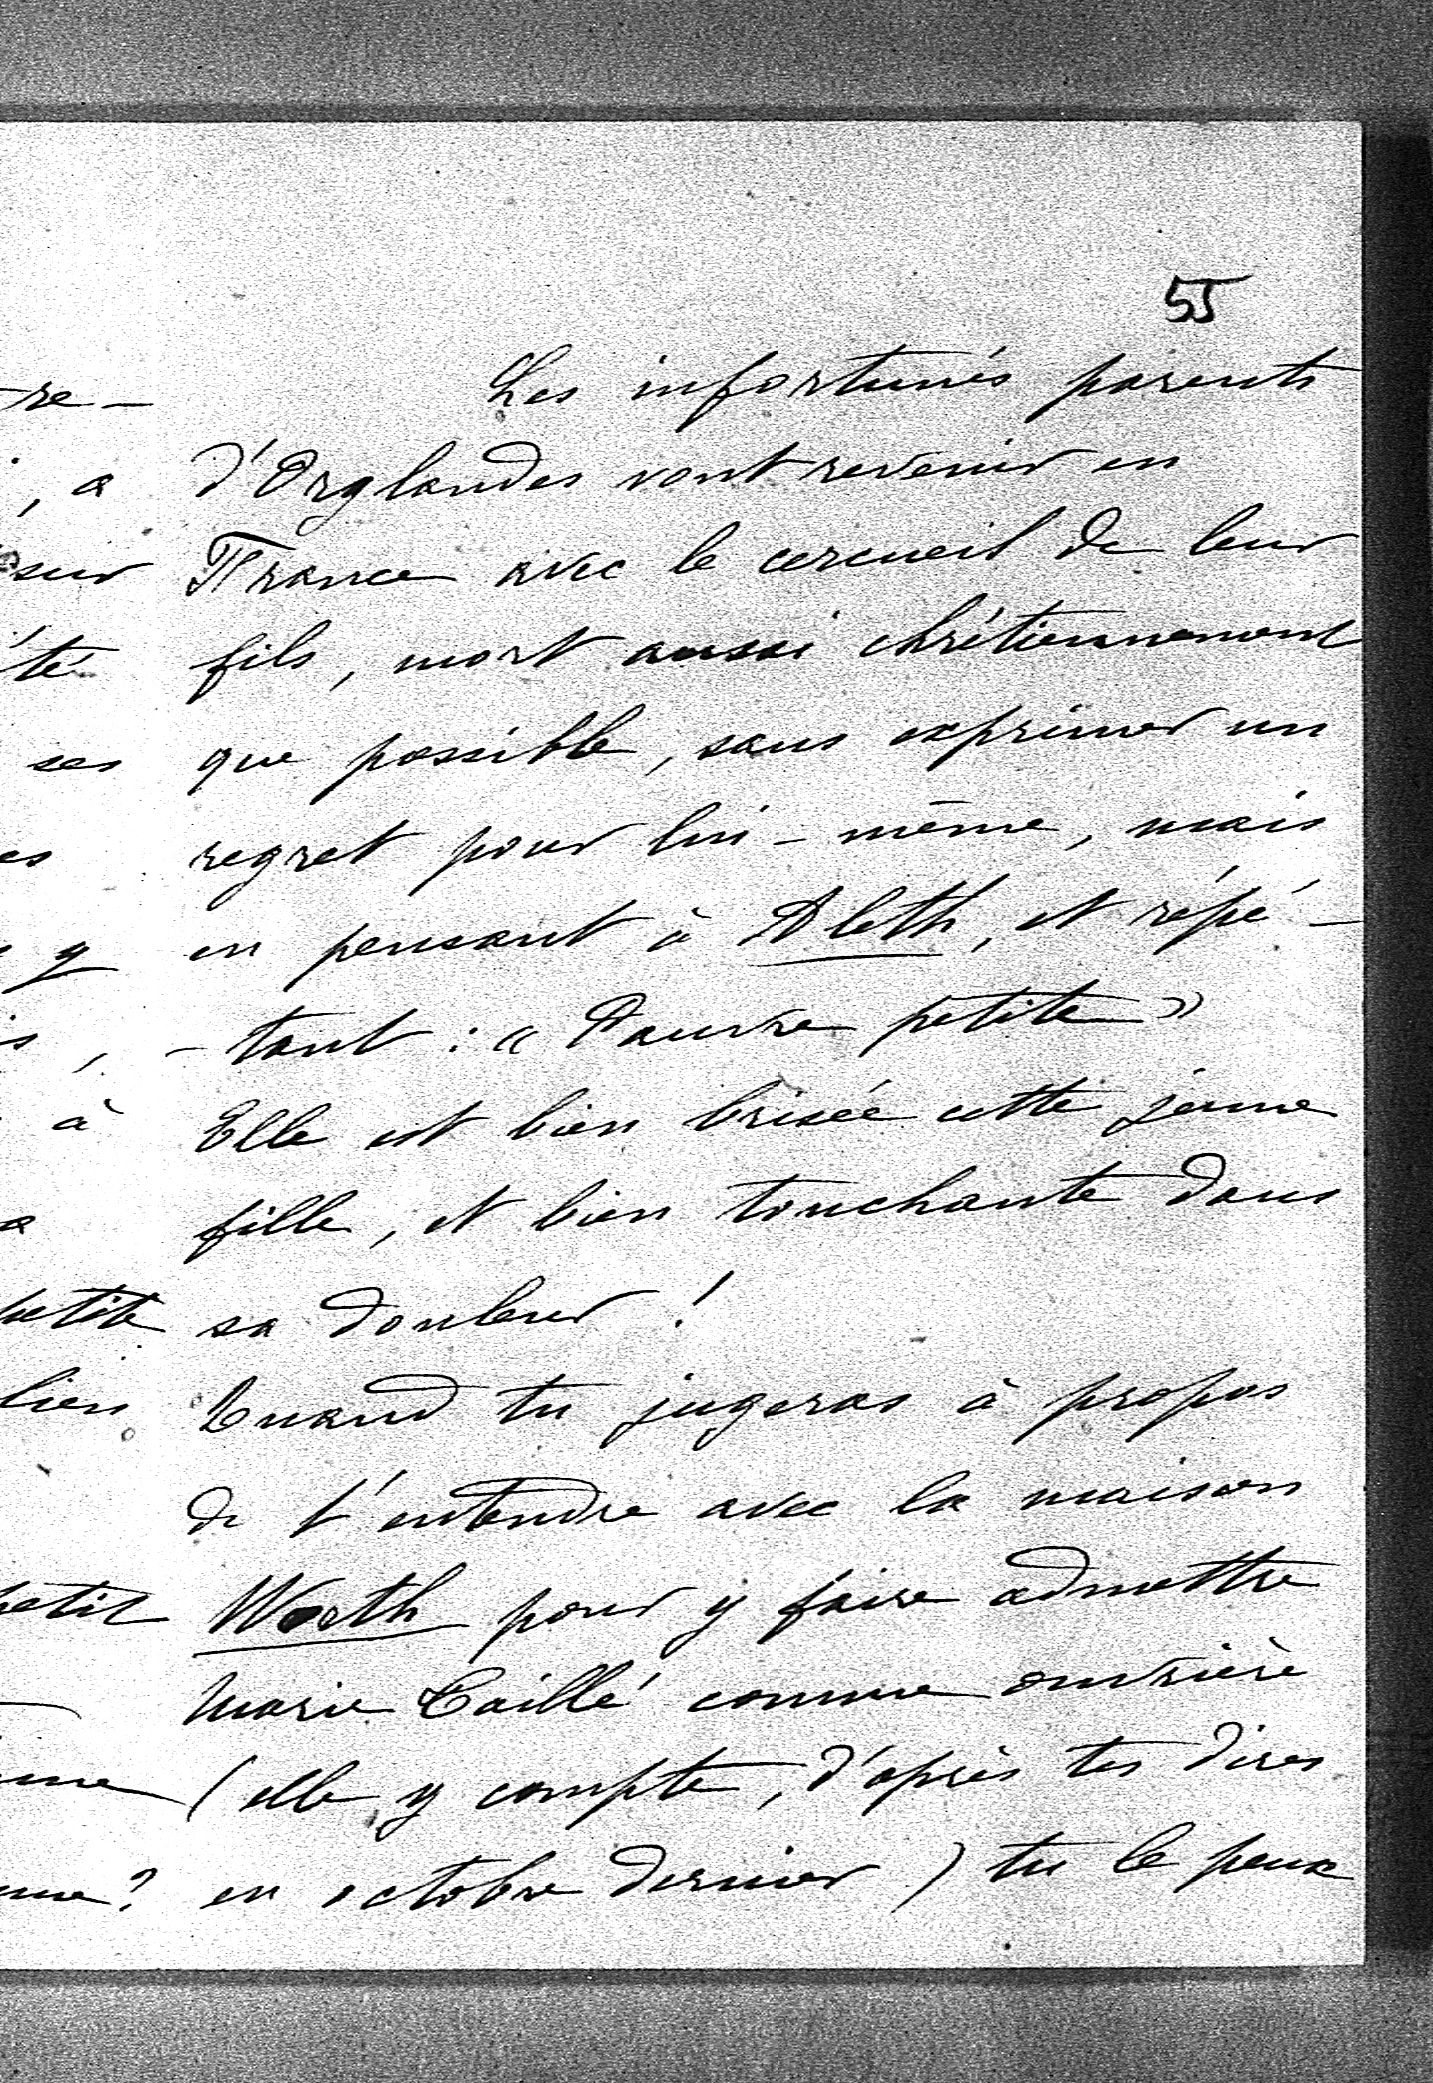 55
Les infortunés parents
d'Orglandes vont revenir en
France avec le cercueil de leur
fils, mort aussi chrétiennement
que possible, sans exprimer un
regret pour lui-même, mais
en pensant à Aleth, et répé-
-tant : « Pauvre petite »
Elle est bien brisée cette jeune
fille, et bien touchante dans
sa douleur !
Quand tu jugeras à propos
de t'entendre avec la maison
Worth pour y faire admettre
Marie Caillé comme ouvrière
(elle y compte, d'après tes dires
en octobre dernier) tu le peux
re-
, a
sur
té
ses
es
y
s,
à
a
petite
bien
petit
me
me?